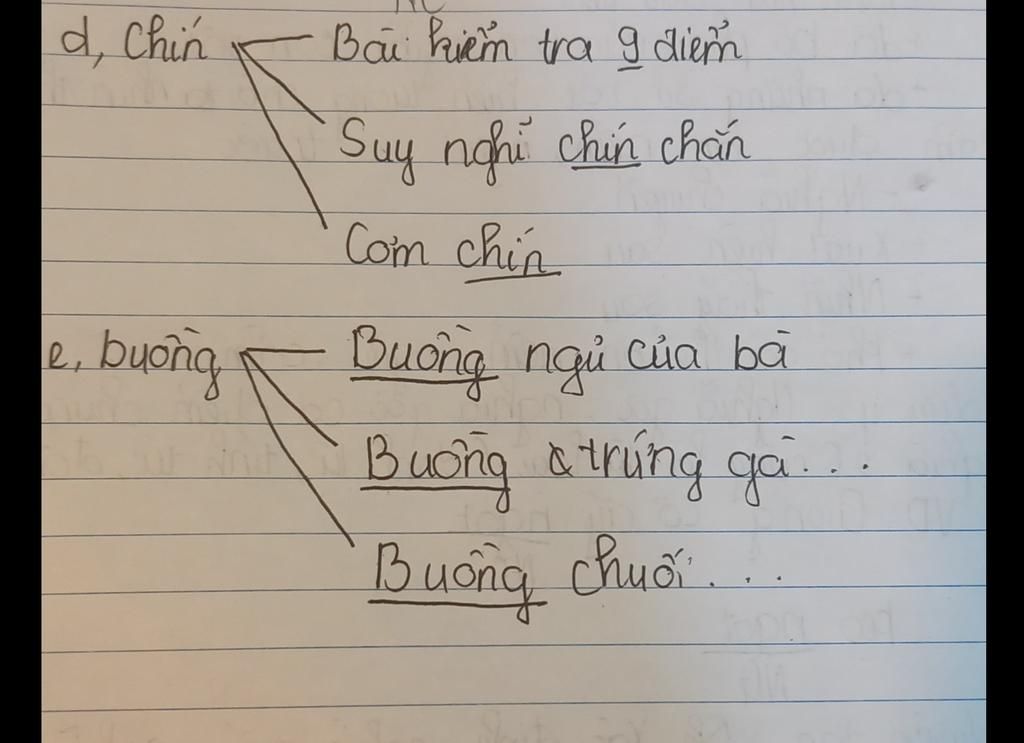 d, Chín Bài kiểm tra 9 điểm
Suy nghĩ chín chắn
Cơm chín
e, buồng Buồng ngủ của bà
Buồng trứng gà...
Buồng chuối...